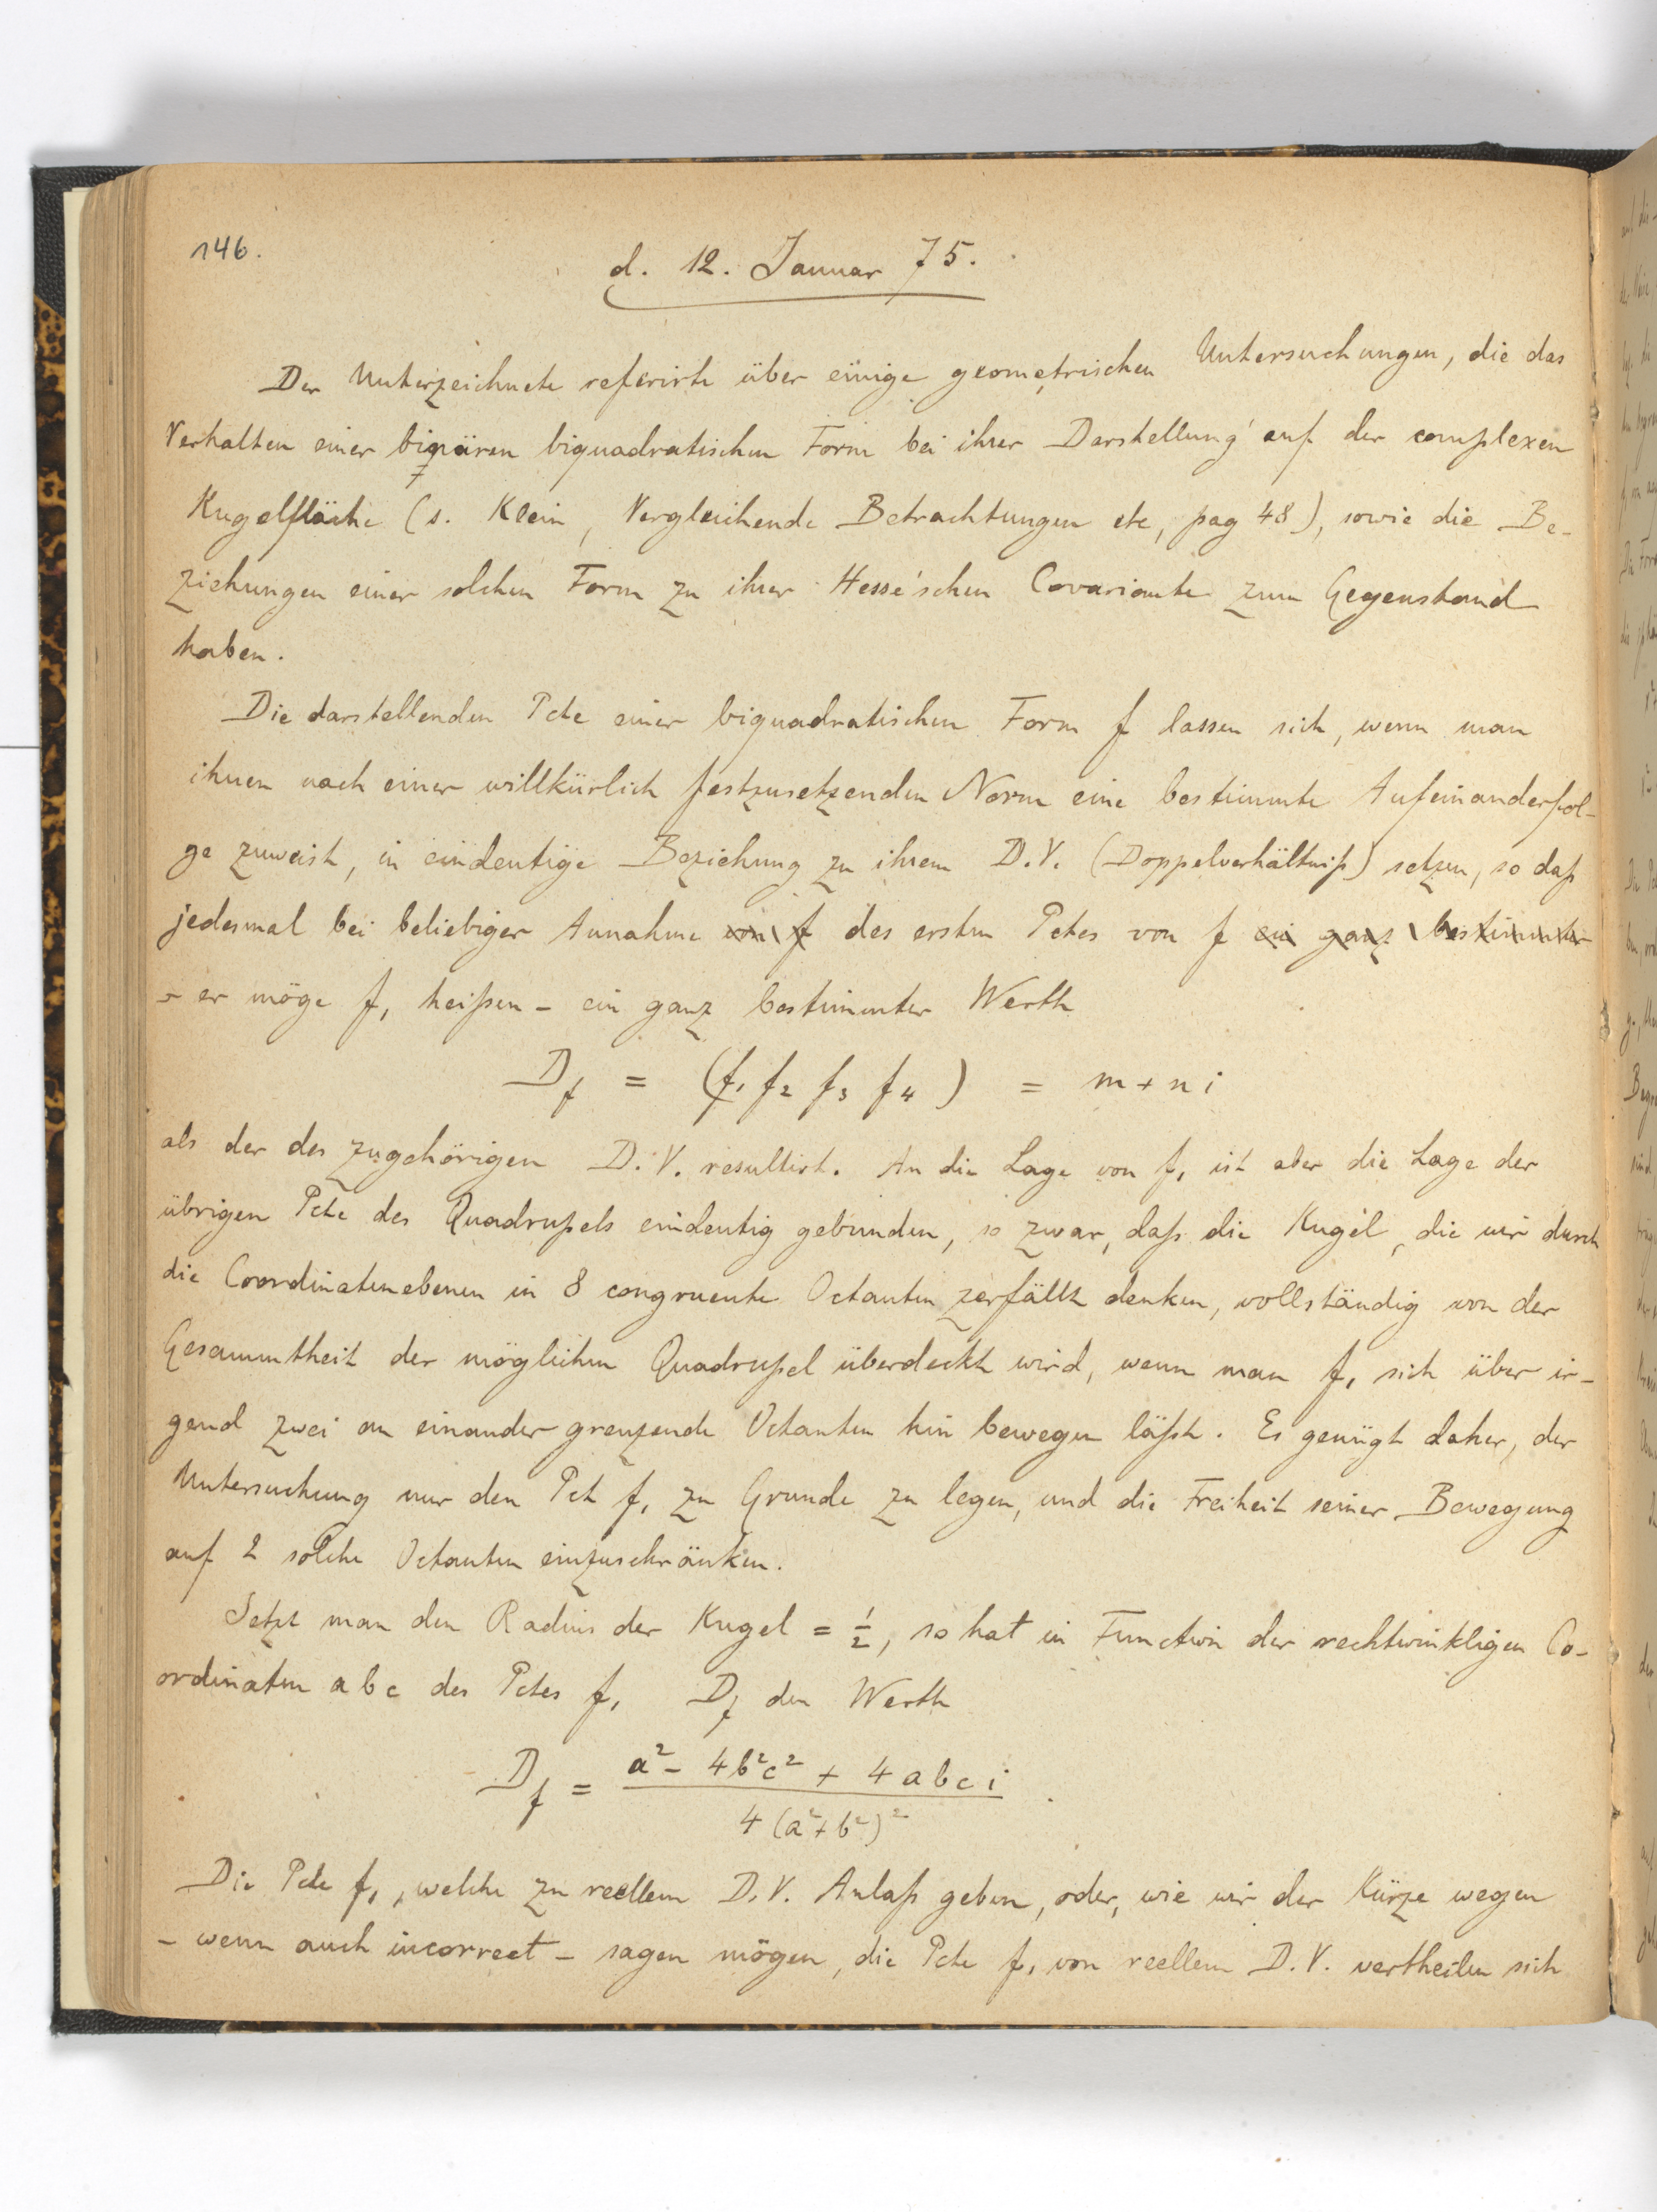 146.
d. 12. Januar 75.
Der Unterzeichnete referirte über einige geometrischen Untersuchungen, die das
Verhalten einer binären biquadratischen Form bei ihrer Darstellung auf der complexen
Kugelfläche (s. Klein, Vergleichende Betrachtungen etc, pag 48), sowie die Be-
ziehungen einer solchen Form zu ihrer Hesse'schen Covariante zum Gegenstand
haben.
Die darstellenden Pcte einer biquadratischen Form f lassen sich, wenn man
ihnen nach einer willkürlich festzusetzenden Norm eine bestimmte Aufeinanderfol-
ge zuweist, in eindeutige Beziehung zu ihrem D.V. (Doppelverhältniß) setzen, so daß
jedesmal bei beliebiger Annahme von f des ersten Pctes von f ein ganz bestimmter
- er möge f₁ heißen - ein ganz bestimmter Werth
D_f = (f₁ f₂ f₃ f₄) = m + n i
als der des zugehörigen D.V. resultirt. An die Lage von f₁ ist aber die Lage der
übrigen Pcte des Quadrupels eindeutig gebunden, so zwar, daß die Kugel, die wir durch
die Coordinatenebenen in 8 congruente Octanten zerfällt denken, vollständig von der
Gesammtheit der möglichen Quadrupel überdeckt wird, wenn man f₁ sich über ir-
gend zwei an einander grenzende Octanten hin bewegen läßt. Es genügt daher, der
Untersuchung nur den Pct f₁ zu Grunde zu legen, und die Freiheit seiner Bewegung
auf 2 solche Octanten einzuschränken.
Setzt man den Radius der Kugel = ½, so hat in Function der rechtwinkligen Co-
ordinaten a b c des Pctes f₁ D_f den Werth
D_f = (a² - 4b²c² + 4abci) / (4(a²+b²)²).
Die Pcte f₁, welche zu reellem D.V. Anlaß geben, oder, wie wir der Kürze wegen
- wenn auch incorrect - sagen mögen, die Pcte f₁ von reellem D.V. vertheilen sich